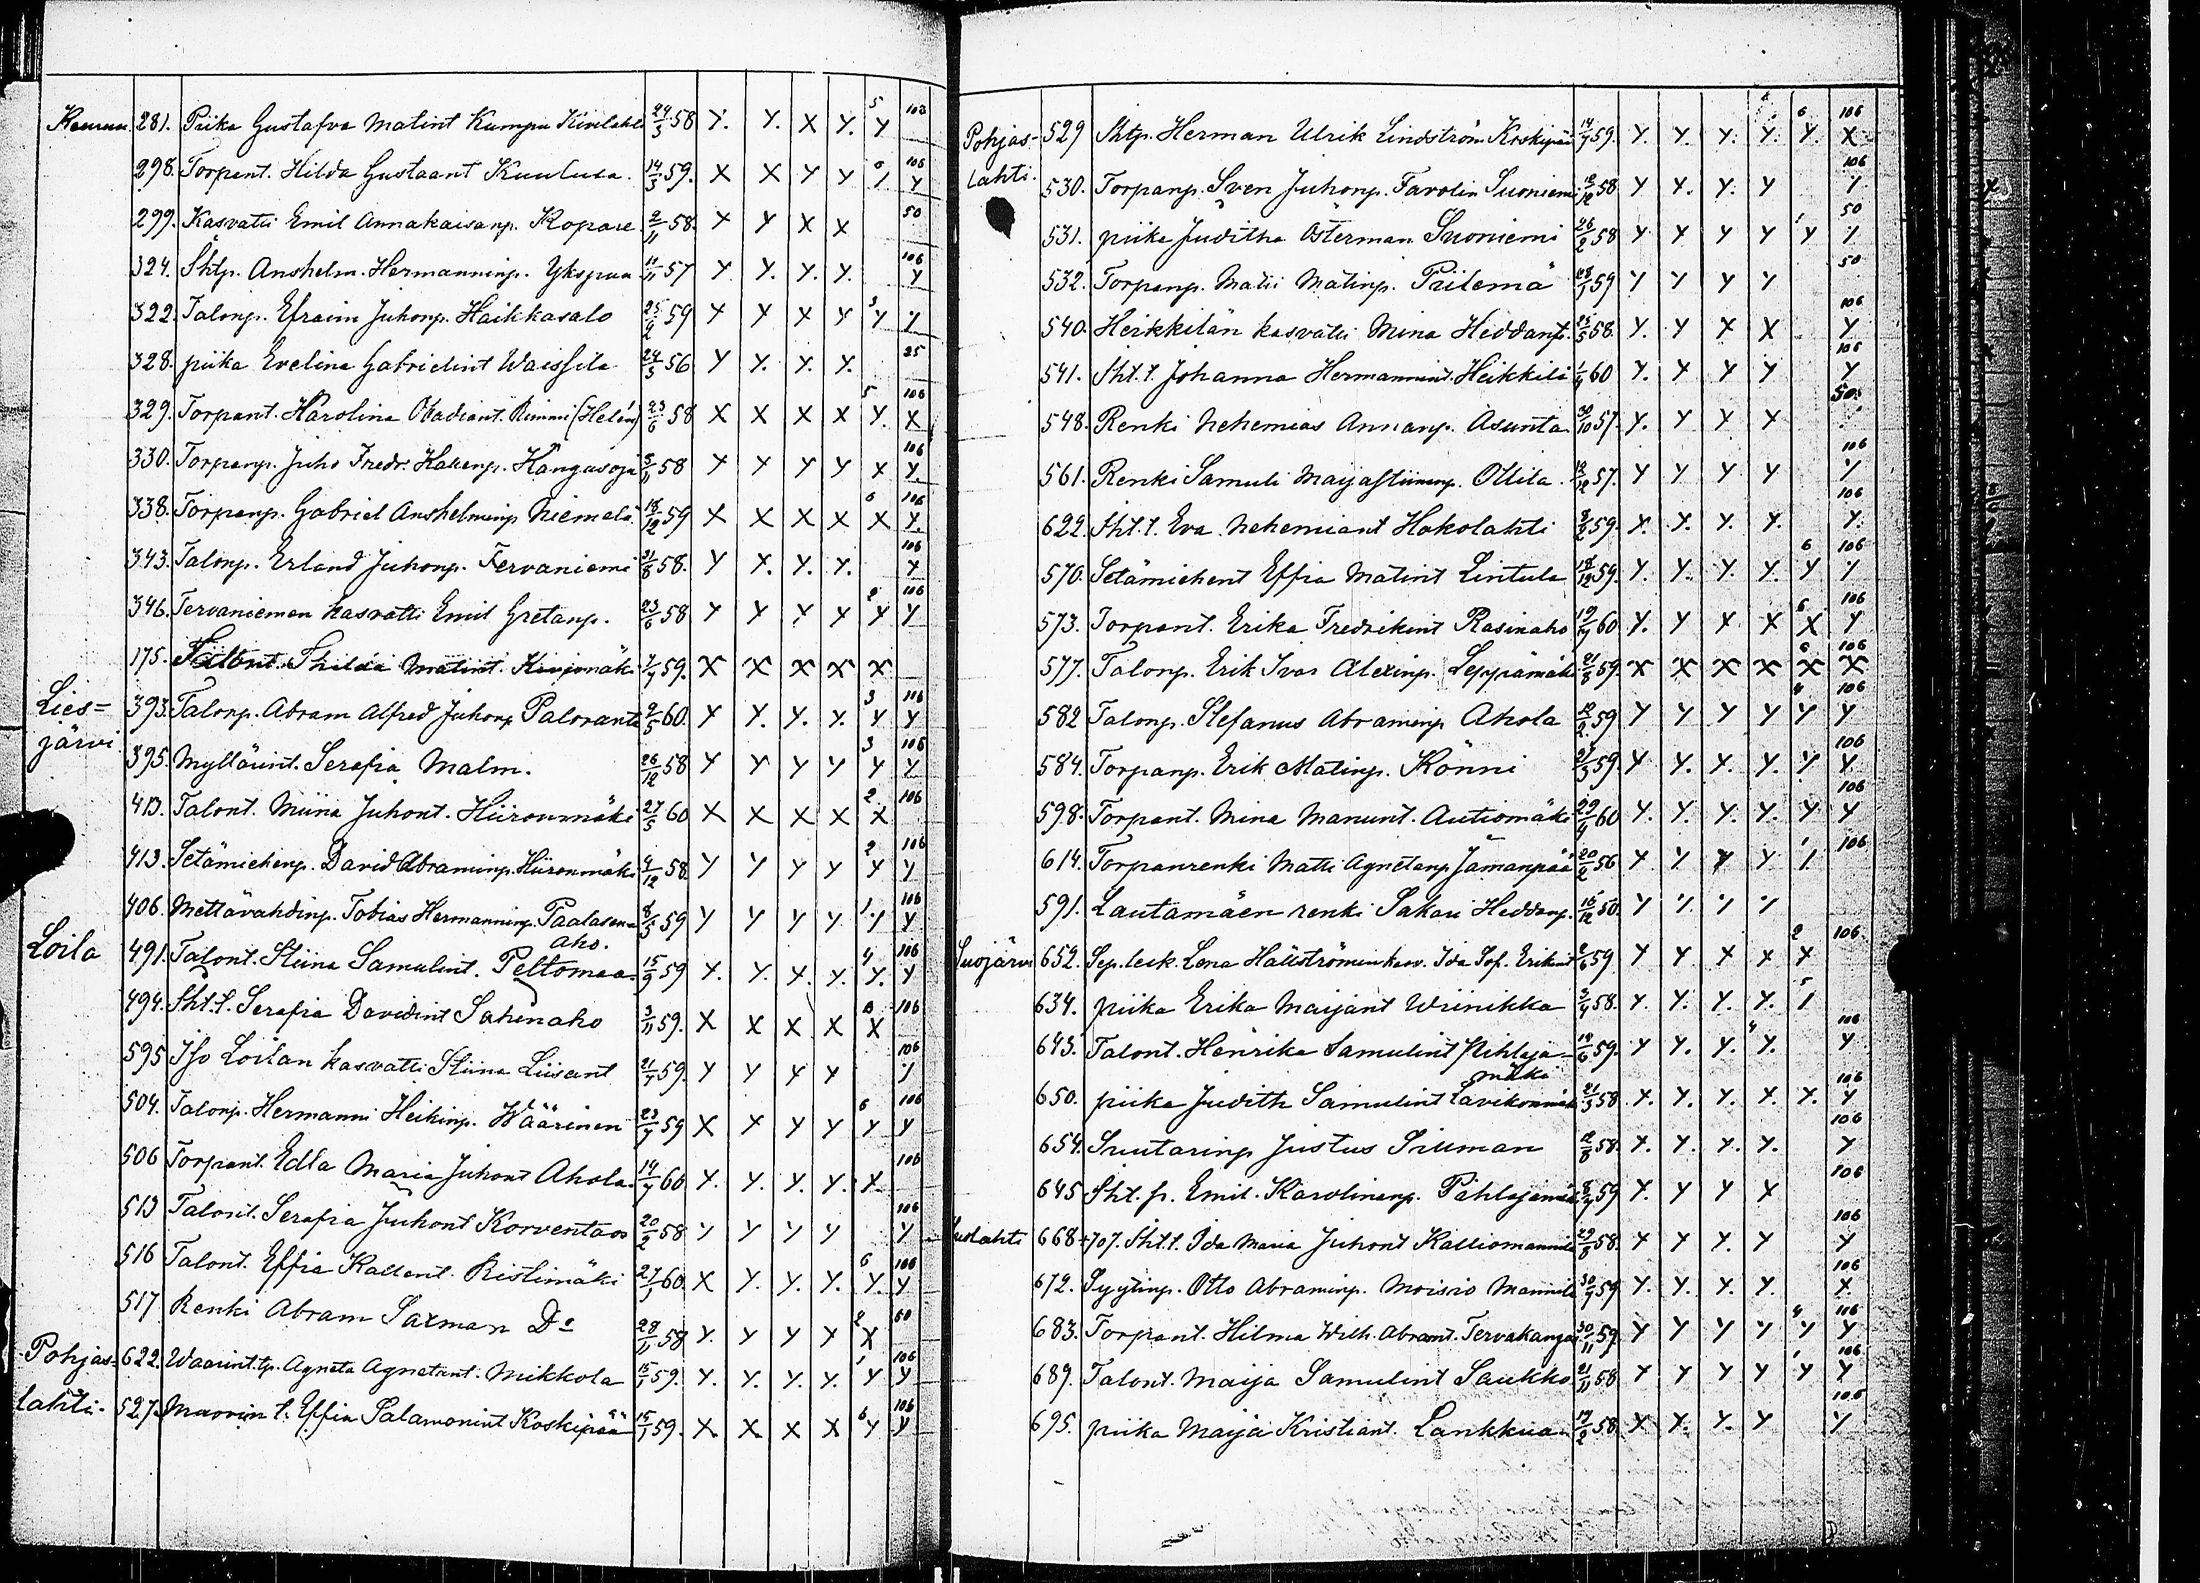 Keuruu 281. Piika Gustafva Matint Kumpu Kivilaht 24/5 58 Y. Y. X Y. 5 Y 103
298. Torpant. Hilda Gustaant Kuulusa. 14/3 59. X X Y Y 6 Y 106 Y
299. Kasvatti Emil Annakaisanp. Kopare 2/11 58. Y Y X X 50
324. Shtp. Anshelm Hermanninp. Ykspuu 10/11 57 Y Y. Y. Y. 106 Y
322. Talonp. Efraim Juhonp. Haikkasalo 25/9 59 Y Y X Y 3 Y Y
328. piika Evelina Gabrielint Waissila 24/5 56 Y Y. Y. Y. 25
329. Torpant. Karolina Obadiant. Rimmi (Helén) 23/6 58 X X X X 5 Y. 106 X
330. Torpanp. Juho Fredr. Kallenp. Kangasoja 3/11 58 Y Y Y Y X 106 Y.
338. Torpanp. Gabriel Anshelminp Niemelä 18/12 59 X X X X 6 X 106 Y
343. Talonp. Erland Juhonp. Tervaniemi 31/8 58. Y Y. Y. Y. 106 Y
346. Tervaniemen kasvatti Emil Gretanp. 23/6 58 Y Y Y Y 2 Y 106 Y
175. Talont. Thilda Matint. Kivimäki 7/4 59. X X X X X
Lies= 393. Talonp. Abram Alfred Juhonp Paloranta 9/5 60. Y Y. Y. Y. 3 Y 106 Y
järvi 395. Myllärint. Serafia Malm. 26/12 58 Y Y Y Y 3 Y 106 Y
413. Talont. Miina Juhont. Hiironmäki 27/5 60 X X X X 2 X 106
413. Setämiehenp. David Abraminp. Hiironmäki 4/12 58. Y Y Y Y 2 Y 106 Y
406. Mettävahdinp. Tobias Hermanninp. Paalasen= 8/5 59 Y Y Y Y 1 Y 106 Y
aho.
Loila 491. Talont. Stiina Samulint. Peltomaa 15/9 59 Y. Y. Y. Y. 4 Y. 106 Y
494. Sht.t. Serafia Davidint Sahinaho 3/11 59. X X X X X 106
595 Iso Loilan kasvatti Stiina Liisant 21/7 59. Y Y Y Y 106 Y
504. Talonp. Hermanni Heikinp. Wäärinen 23/7 59 X X Y Y 6 Y 106 Y
506 Torpant. Edla Maria Juhont Ahola 14/7 60 Y. Y. Y. Y. X 106
513 Talont. Serafia Juhont Korventaos 20/2 58 Y Y Y Y 106 Y
516 Talont. Effia Kallent. Ristimäki 27/1 60. X Y. Y. Y. 6 Y. 106 Y
517 Renki Abram Saxman Do 28/11 58 Y. Y Y Y 2 X 50
Pohjas- 622. Waarint.tp. Agneta Agnetant. Mikkola 15/1 59. Y. Y. Y. Y. 1 Y 106 Y
lahti. 527. Muurin t. Effia Salamonint Koskipää 15/1 59. X X X X 6 Y 106 Y
Pohjas- 529 Shtp. Herman Ulrik Lindström Koskipää 14/7 59. Y. Y. Y. Y. 6 Y. 106 X
lahti. 530. Torpanp. Sven Juhonp. Farolin Suoniemi 12/12 58 Y Y. Y. Y 106 Y
531. piika Juditha Österman Suoniemi 26/2 58 Y Y Y Y 1 Y 50 Y
532. Torpanp. Matti Matinp. Piilemä 28/7 59 Y Y Y Y 50
540. Heikkilän kasvatti Mina Heddant. 25/5 58. Y. Y X X 106 Y
541. Sht.t. Johanna Hermannint. Heikkilä 1/4 60 Y. Y Y Y 106 Y
548. Renki Nehemias Annanp. Asunta 30/10 57. Y. Y Y X 50
561. Renki Samuli Maijastiinanp. Ollila 12/12 57. Y Y Y Y 106 Y
622. Sht.t. Eva Nehemiant Hokolahti 8/2 59. X. Y. Y. Y. 106 Y.
570. Setämiehent Effia Matint Lintula 12/12 59. Y. Y. Y. Y. 6 Y 106 Y
573. Torpant. Erika Fredrikint Rasinaho 19/4 60 Y. Y Y X 6 X 106 Y
577. Talonp. Erik Ivar Alexinp. Leppämäki 21/8 59. X X X X 6 X 106 X
582 Talonp. Stefanus Abraminp Ahola 12/2 59 Y Y Y Y 4 Y 106 Y
584. Torpanp. Erik Matinp. Könni 2/3 59. Y Y. Y. Y. Y 106 Y.
598. Torpant. Mina Manunt. Autiomäki 29/4 60 Y. Y. Y. Y. Y 106 Y
614. Torpanrenki Matti Agnetanp Jämänpää 20/2 56 Y Y Y Y 1 Y 106
591. Lautamäen renki Sakari Heddanp. 16/12 50. Y Y Y Y
Suojärvi 652. Sep. lesk. Lena Hällströmin kasv. Ida Sof. Erikint 2/6 59 Y Y X X 2 X 106.
634. piika Erika Maijant Wiinikka 3/4 58. Y. Y. Y. Y. 5 Y
643. Talont. Henrika Samulint Pihlaja- 14/6 59. Y Y. Y. 4 Y. 106 Y
mäki
650. piika Judith Samulint Lavikonmäki 21/3 58 Y. Y. Y. Y. Y. 106 Y
654. Suutarinp Justus Silman 12/8 58. Y. Y. Y. Y. 106 Y
645 Sht.p. Emil Karolinanp. Pihlajamäki 8/4 59 Y. Y Y X 106
668+707. Sht.t. Ida Maria Juhont Kalliomannila 29/8 58. Y Y Y. Y 106 Y
672. Syytinp. Otto Abraminp. Moisio Mannila 30/7 59 Y. Y. Y. Y. 106 X.
683. Torpant. Hilma Wilh. Abramt. Tervakangas 30/11 59 Y Y Y Y 4 Y 106 Y
689. Talont. Maija Samulint Saukko 21/11 58 Y Y Y Y 1 Y 106 Y
695. piika Maija Kristiant. Lankkua 17/2 58. Y Y. Y. Y 106 Y